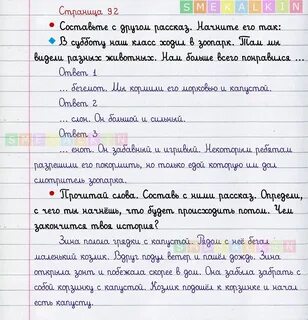 SMEKALKIN
Страница 92
• Составьте с другом рассказ. Начните его так:
◆ В субботу наш класс ходил в зоопарк. Там мы
видели разных животных. Нам больше всего понравился ...
Ответ 1
... бегемот. Мы кормили его морковью и капустой.
Ответ 2
... слон. Он большой и сильный.
SMEKALKIN
Ответ 3
... енот. Он забавный и игривый. Некоторым ребятам
разрешили его покормить, но только едой которую им дал
смотритель зоопарка.
• Прочитай слова. Составь с ними рассказ. Определи,
с чего ты начнёшь, что будет происходить потом. Чем
закончится твоя история?
Зина полола грядки с капустой. Рядом с неё бегал
маленький козлик. Вдруг подул ветер и пошёл дождь. Зина
открыла зонт и побежала скорее в дом. Она забыла забрать с
собой корзинку с капустой. Козлик подошёл к корзинке и начал
есть капусту.